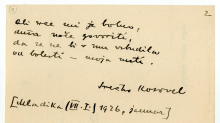 2
ali vse mi je bolno,
duša noče govoriti,
da se ne bi v nji vzbudila
od bolesti – moja mati.
Srečko Kosovel
[Mladika (VII. I.) 1926, januar]